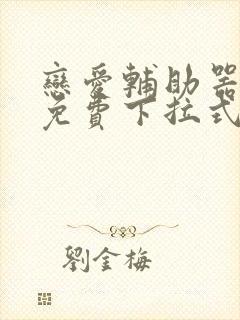 戀愛輔助器
免費下拉式
劉金梅